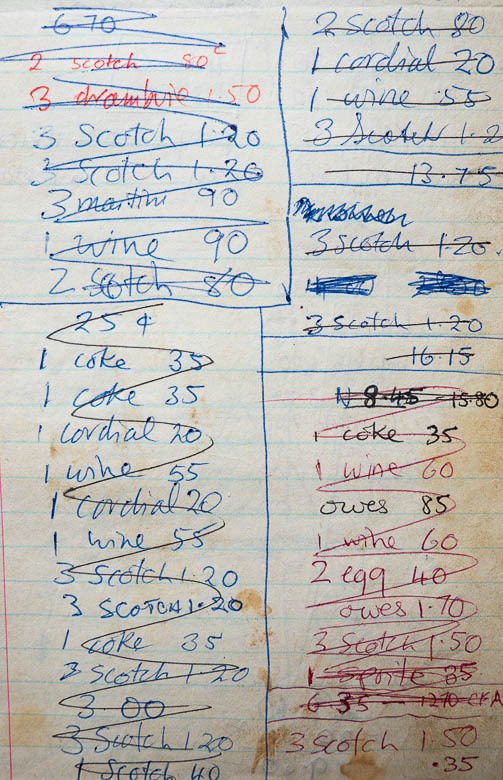 6 70
2 scotch 80c
3 drambuie 1.50
3 Scotch 1.20
3 Scotch 1.20
3 martini 90
1 wine 90
2 Scotch 80
25 ¢
1 coke 35
1 coke 35
1 cordial 20
1 wine 55
1 Cordial 20
1 wine 55
3 Scotch 1.20
3 SCOTCH 1.20
1 coke 35
3 Scotch 1.20
3 00
3 Scotch 1.20
1 Scotch 40
2 Scotch 80
1 cordial 20
1 wine 55
3 Scotch 1.2
13.75
3 scotch 1.20
3 scotch 1.20
16.15
8.45 15.80
1 coke 35
1 wine 60
owes 85
1 wine 60
2 egg 40
owes 1.70
3 Scotch 1.50
1 Sprite 35
6 35 1270
3 Scotch 1.50
.35